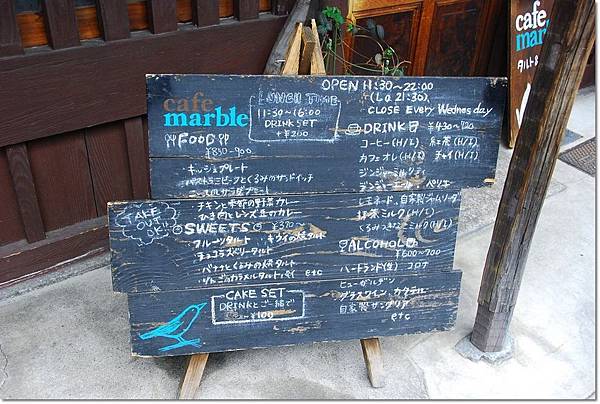 cafe
marble
LUNCH TIME
11:30~16:00
DRINK SET
+¥200
OPEN 11:30~22:00
(L.o 21:30)
CLOSE Every Wednesday
FOOD
¥850~900
キッシュプレート
チキンと季節の野菜カレー
ひき肉とレンズ豆のカレー
DRINK
コーヒー(H/I) 紅茶(H/I)
カフェオレ(H/I) チャイ(H/I)
ジンジャーミルクティ
レモネード、自家製ジンジャーソーダ
抹茶ミルク(H/I)
TAKE OUT
SWEETS
¥370~
フルーツタルト
チョコラズベリータルト
バナナとくるみの焼タルト
りんごのカラメルタルト etc
ALCOHOL
¥600~700
ハートランド(生) コロナ
ヒューガルデン
グラスワイン、カクテル
自家製サングリア
etc
CAKE SET
DRINKとご一緒で
¥100
cafe
marble
タルト